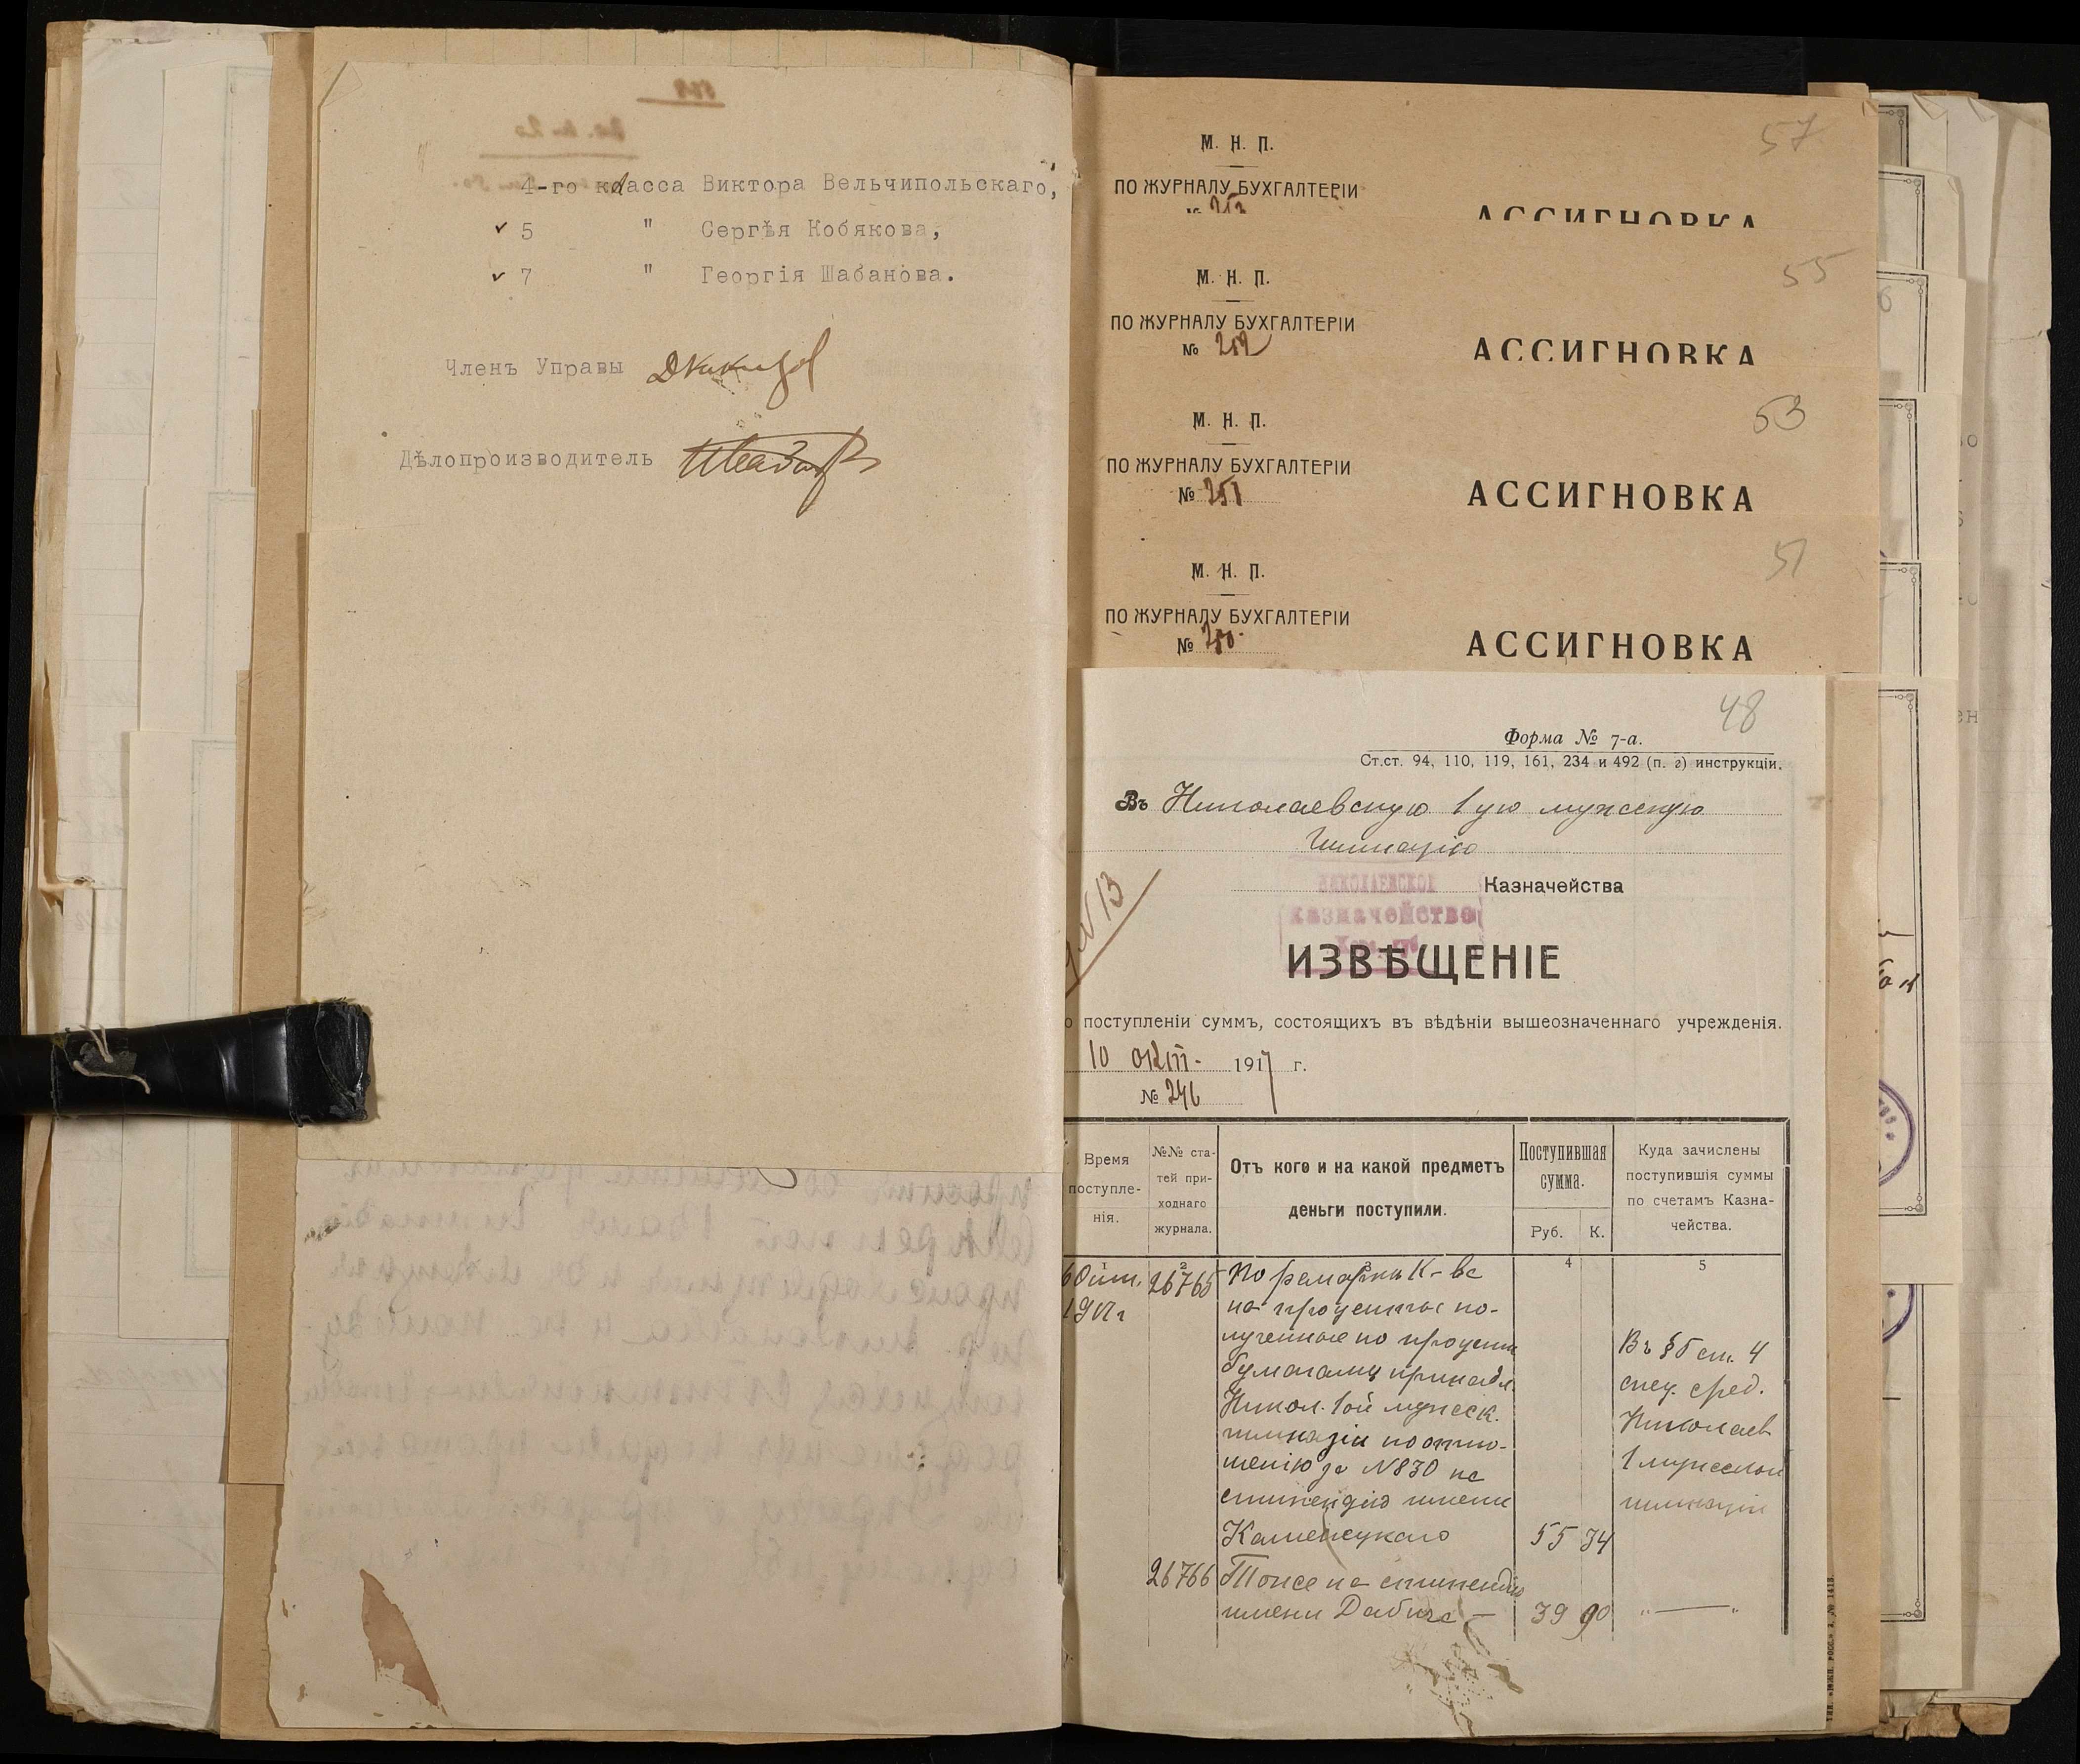 4-го класса Виктора Вельчипольскаго,
✓ 5 " Сергѣя Кобякова,
✓ 7 " Георгія Шабанова.
Членъ Управы
Дѣлопроизводитель
57
М. Н. П.
ПО ЖУРНАЛУ БУХГАЛТЕРІИ
АССИГНОВКА
55
М. Н. П.
ПО ЖУРНАЛУ БУХГАЛТЕРІИ
№ 252
АССИГНОВКА
53
М. Н. П.
ПО ЖУРНАЛУ БУХГАЛТЕРІИ
№ 251
АССИГНОВКА
51
М. Н. П.
ПО ЖУРНАЛУ БУХГАЛТЕРІИ
№ 250
АССИГНОВКА
48
Форма № 7-а.
Ст.ст. 94, 110, 119, 161, 234 и 492 (п. г) инструкціи.
Въ Николаевскую 1ую мужскую
Гимназію
Казначейства
казначейство
ИЗВѢЩЕНІЕ
о поступленіи суммъ, состоящихъ въ вѣдѣніи вышеозначеннаго учрежденія.
10 окт. 1917 г.
№ 246
Время поступле-нія.
№№ ста-тей при-ходнаго журнала.
Отъ кого и на какой предметъ деньги поступили.
Поступившая сумма.
Руб. К.
Куда зачислены поступившія суммы по счетамъ Казна-чейства.
2 4 5
6 Окт. 26765 По К-ва
1917 г на проценты по-
лученные по процент
бумагамъ принадл.
Никол. 1ой мужск.
гимназіи по отно-
шенію за N 830 на
стипендію имени
Каменецкаго 55 34
Въ § 5 ст. 4
спец. сред.
Николаев
1 мужской
гимназіи
26766 Тоже на стипендію
имени Дабича — 39 90 " — "